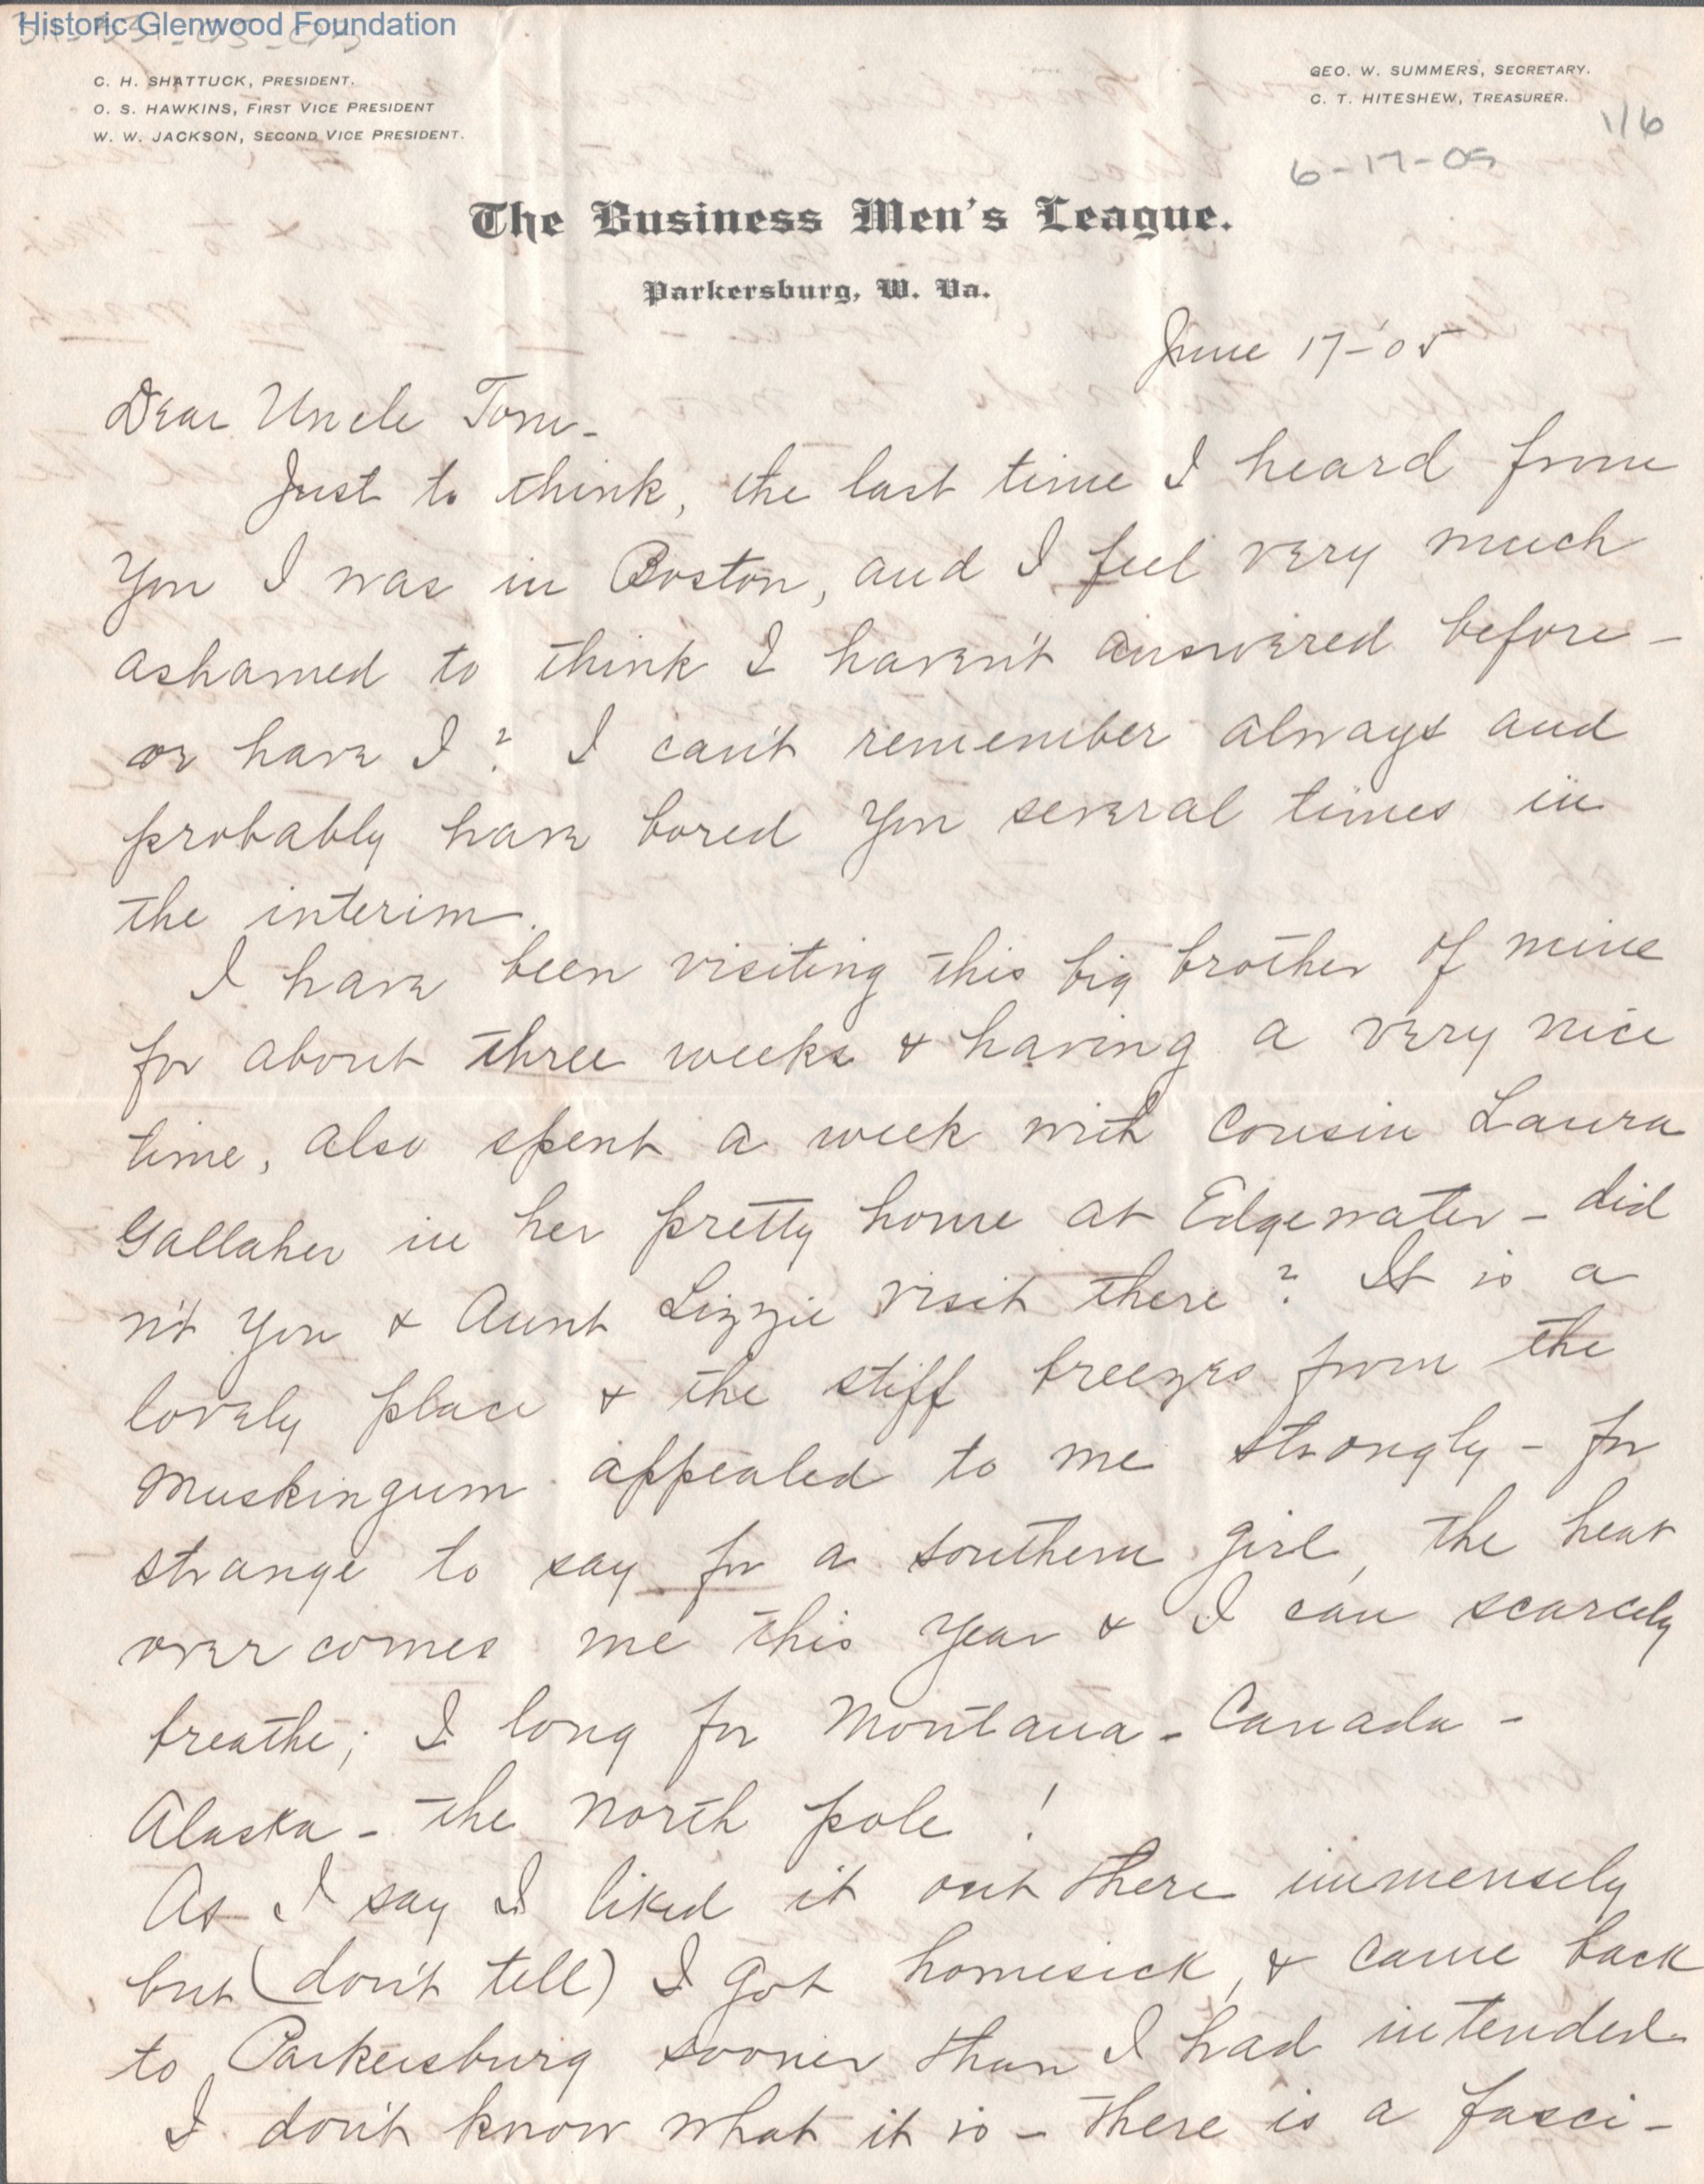 Historic Glenwood Foundation
C. H. SHATTUCK, PRESIDENT.
O. S. HAWKINS, FIRST VICE PRESIDENT
W. W. JACKSON, SECOND VICE PRESIDENT.
GEO. W. SUMMERS, SECRETARY.
C. T. HITESHEW, TREASURER.
116
6-17-05
The Business Men's League.
Parkersburg, W. Va.
June 17-'05
Dear Uncle Tom-
Just to think, the last time I heard from
you I was in Boston, and I feel very much
ashamed to think I haven't answered before -
or have I? I can't remember always and
probably have bored you several times in
the interim.
I have been visiting this big brother of mine
for about three weeks & having a very nice
time, also spent a week with Cousin Laura
Gallaher in her pretty home at Edgewater - did
n't you & Aunt Lizzie visit there? It is a
lovely place & the stiff breezes from the
Muskingum appealed to me strongly - for
strange to say for a southern girl, the heat
over comes me this year & I can scarcely
breathe; I long for Montana - Canada -
Alaska - the North pole!
As I say I liked it out there immensely
but (don't tell) I got homesick, & came back
to Parkersburg sooner than I had intended
I don't know what it is - there is a fasci-